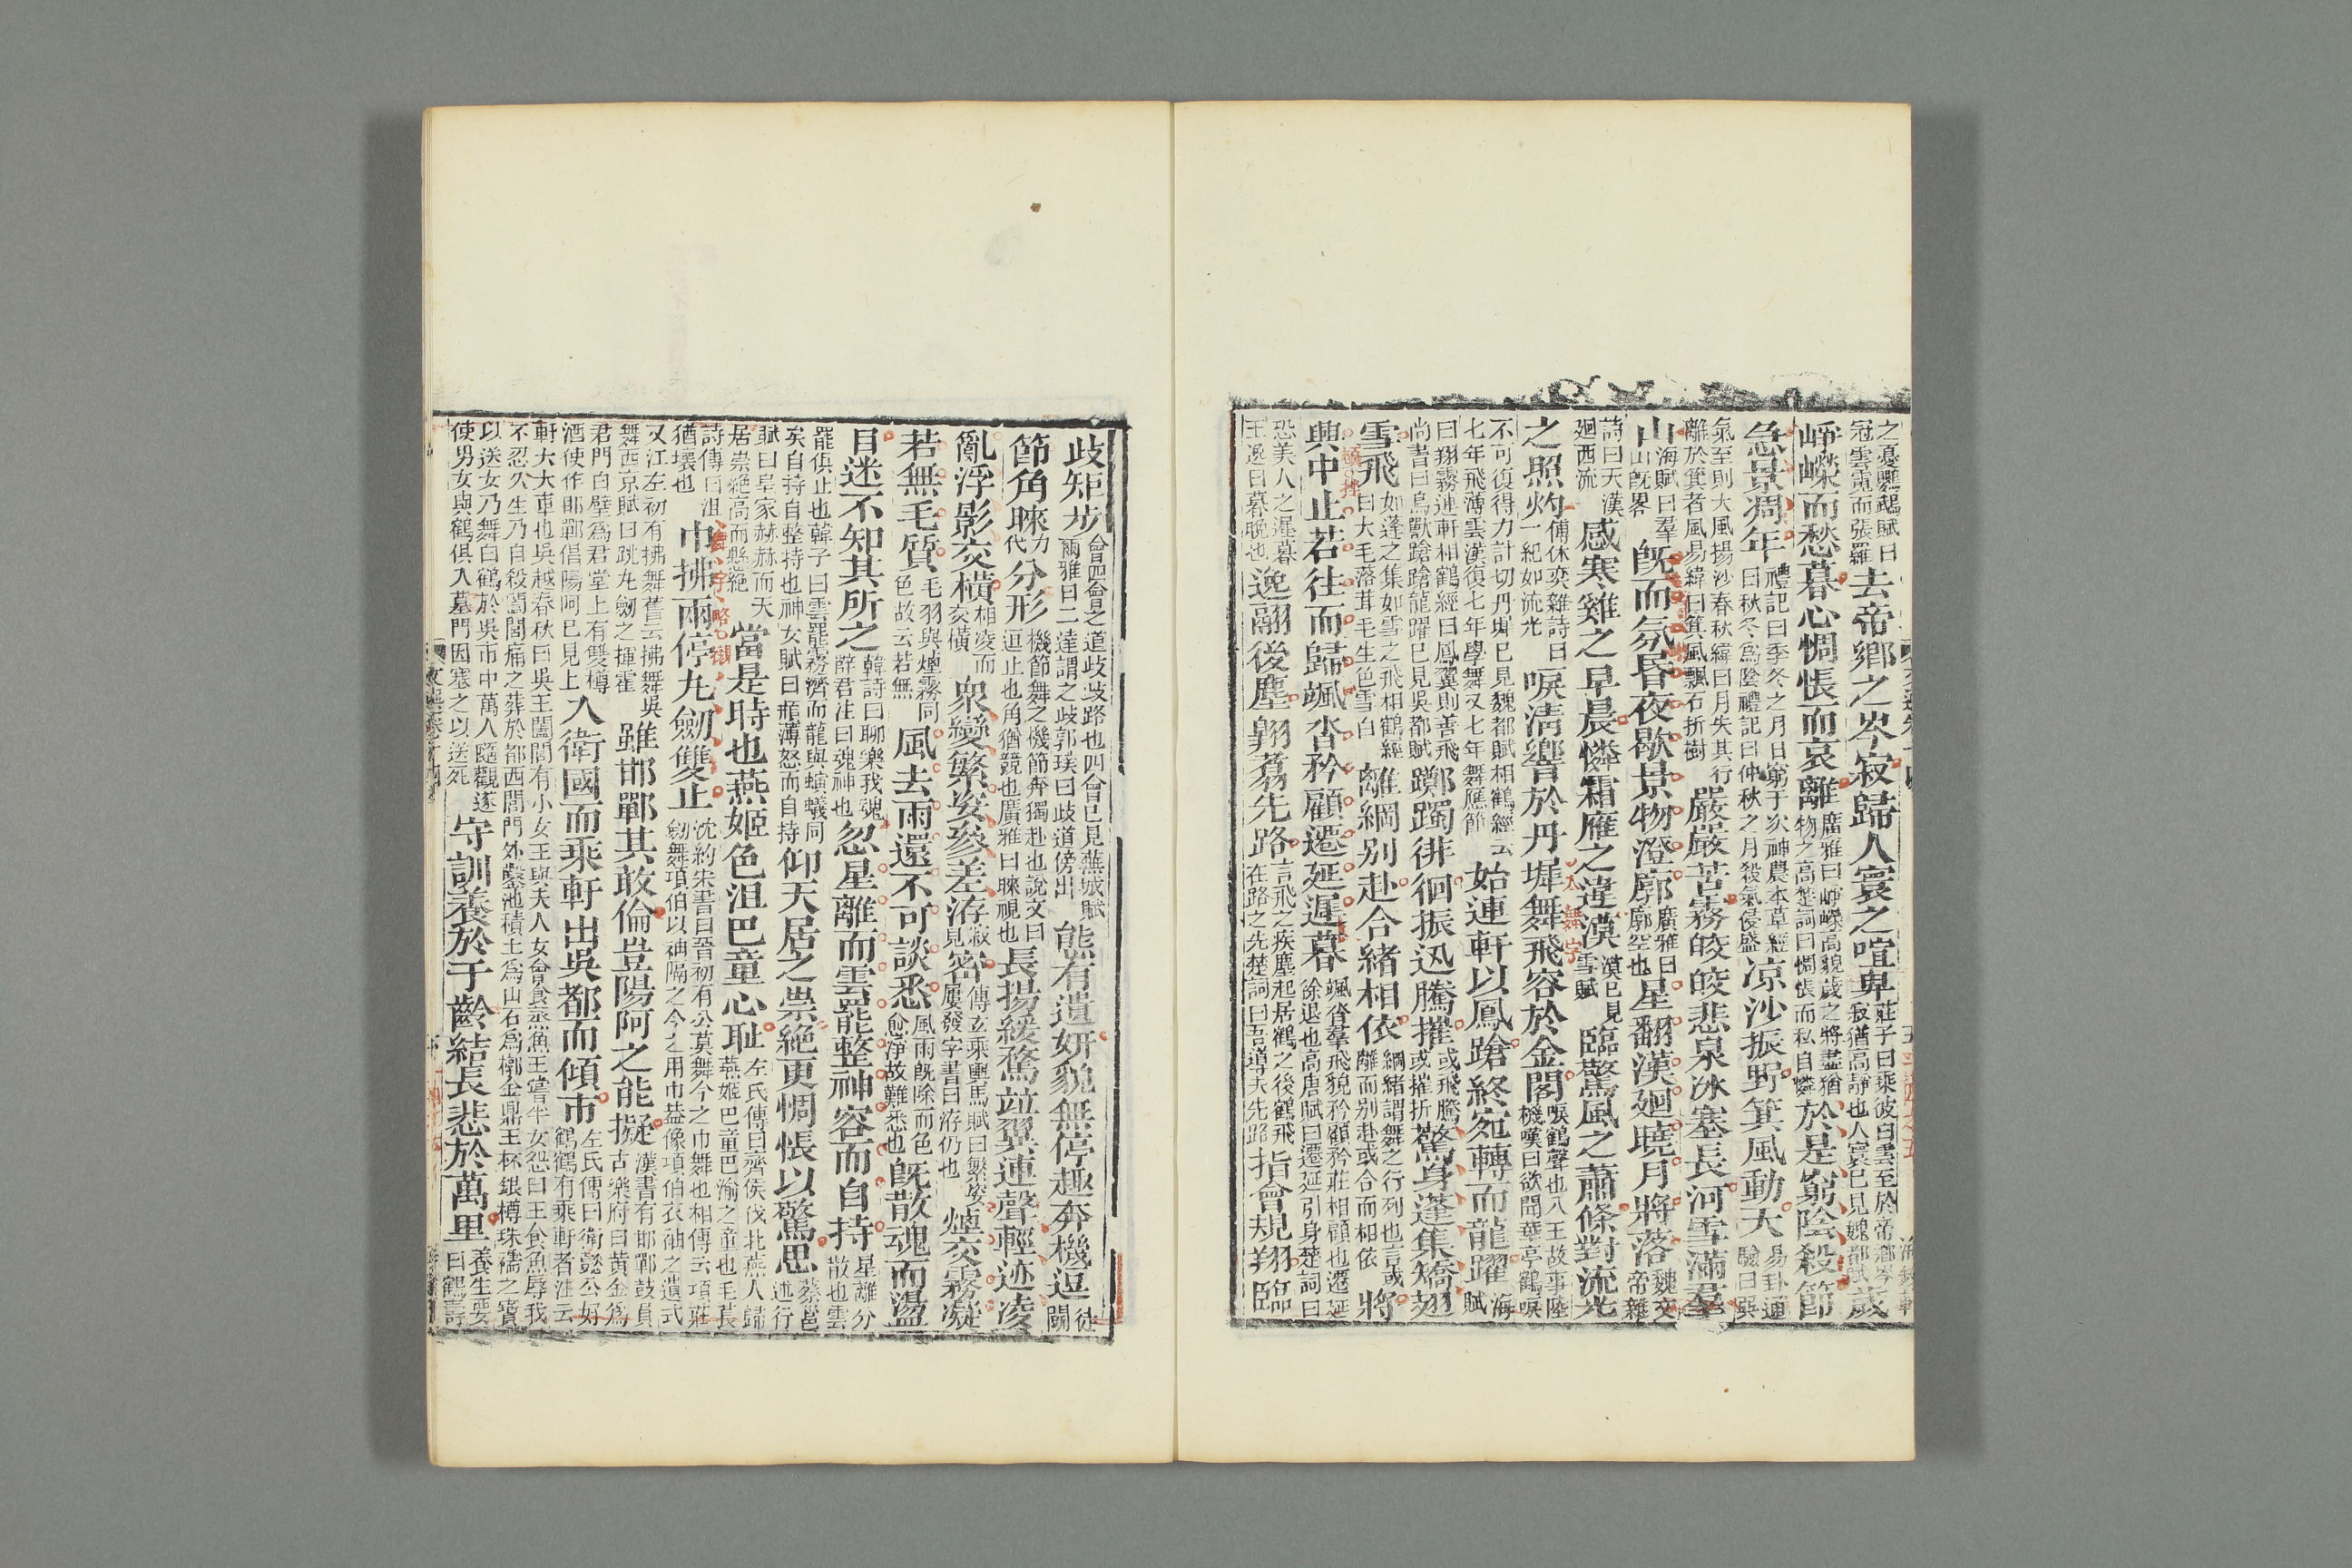 之憂鸚鵡賦曰
冠雲霓而張羅
去帝鄉之岑寂歸人寰之喧卑
莊子曰乘彼白雲至於帝鄉岑
寂猶高靜也人寰已見魏都賦
歲
崢嶸而愁暮心惆悵而哀離
廣雅曰崢嶸高貌歲之將盡猶
物之高楚詞曰惆悵而私自憐
於是窮陰殺節
急景凋年
禮記曰季冬之月日窮于次神農本草經
曰秋冬爲陰禮記曰仲秋之月殺氣侵盛
凉沙振野箕風動天
易卦通
驗曰巽
氣至則大風揚沙春秋緯曰月失其行
離於箕者風易緯曰箕風飄石折樹
嚴嚴苦霧皎皎悲泉冰塞長河雪滿羣
山
海賦曰羣
山旣畧
旣而氛昏夜歇景物澄廓
廣雅曰
廓空也
星翻漢廻曉月將落
魏文
帝雜
詩曰天漢
廻西流
感寒雞之早晨憐霜雁之違漠
漠已見
雪賦
臨驚風之蕭條對流光
之照灼
傅休奕雜詩曰
火一紀如流光
唳淸響於丹墀舞飛容於金閣
唳鶴聲也八王故事陸
機嘆曰欲聞華亭鶴唳
不可復得力計切丹墀已見魏都賦相鶴經云
七年飛薄雲漢復七年學舞又七年舞應節
始連軒以鳳蹌終宛轉而龍躍
海
賦
曰翔霧連軒相鶴經曰鳳翼則善飛
尚書曰鳥獸蹌蹌龍躍已見吳都賦
躑躅徘徊振迅騰摧
或飛騰
或摧折
驚身蓬集矯翅
雪飛
如蓬之集如雪之飛相鶴經
曰大毛落茸毛生色雪白
離綱别赴合緒相依
綱緒謂舞之行列也言或
離而别赴或合而相依
將
興中止若往而歸颯沓矜顧遷延遲暮
颯沓羣飛貌矜顧矜莊相顧也遷延
徐退也高唐賦曰遷延引身楚詞曰
恐美人之遲暮
王逸曰暮晚也
逸翮後塵翱翥先路
言飛之疾塵起居鶴之後鶴飛
在路之先楚詞曰吾導夫先路
指會規翔臨
歧矩步
會四會之道歧歧路也四會已見蕪城賦
爾雅曰二達謂之歧郭璞曰歧道傍出
態有遺妍貌無停趣奔機逗
徒
闘
節角睞
力
代
分形
機節舞之機節奔獨赴也說文曰
逗止也角猶競也廣雅曰睞視也
長揚緩騖竝翼連聲輕迹凌
亂浮影交橫
相凌而
交橫
衆變繁姿參差洊
寂
見
密
傅玄乘輿馬賦曰繁姿
屢發字書曰洊仍也
煙交霧凝
若無毛質
毛羽與煙霧同
色故云若無
風去雨還不可談悉
風雨旣除而色
愈淨故難悉也
旣散魂而盪
目迷不知其所之
韓詩曰聊樂我魂
薛君注曰魂神也
忽星離而雲罷整神容而自持
星離分
散也雲
罷俱止也韓子曰雲罷霧濟而龍與螾蟻同
矣自持自整持也神女賦曰頩薄怒而自持
仰天居之崇絶更惆悵以驚思
蔡邕
述行
賦曰皇家赫赫而天
居崇絶高而懸絶
當是時也燕姬色沮巴童心耻
左氏傳曰齊侯伐北燕人歸
燕姬巴童巴渝之童也毛萇
詩傳曰沮
猶壞也
巾拂兩停九劒雙止
沈約宋書曰晉初有公莫舞今之巾舞也相傳云項莊
劒舞項伯以袖隔之今之用巾葢像項伯衣袖之遺式
又江左初有拂舞舊云拂舞吳
舞西京賦曰跳丸劒之揮霍
雖邯鄲其敢倫豈陽阿之能擬
漢書有邯鄲鼓員
古樂府曰黃金爲
君門白璧爲君堂上有雙樽
酒使作邯鄲倡陽阿已見上
入衛國而乘軒出吳都而傾市
左氏傳曰衛懿公好
鶴鶴有乘軒者注云
軒大夫車也吳越春秋曰吳王闔閭有小女王與夫人女會食蒸魚王嘗半女怨曰王食魚辱我
不忍久生乃自殺闔閭痛之葬於都西閶門外鑿池積土爲山石爲槨金鼎玉杯銀樽珠襦之寶
以送女乃舞白鶴於吳市中萬人隨觀遂
使男女與鶴俱入墓門因塞之以送死
守訓養於千齡結長悲於萬里
養生要
曰鶴壽